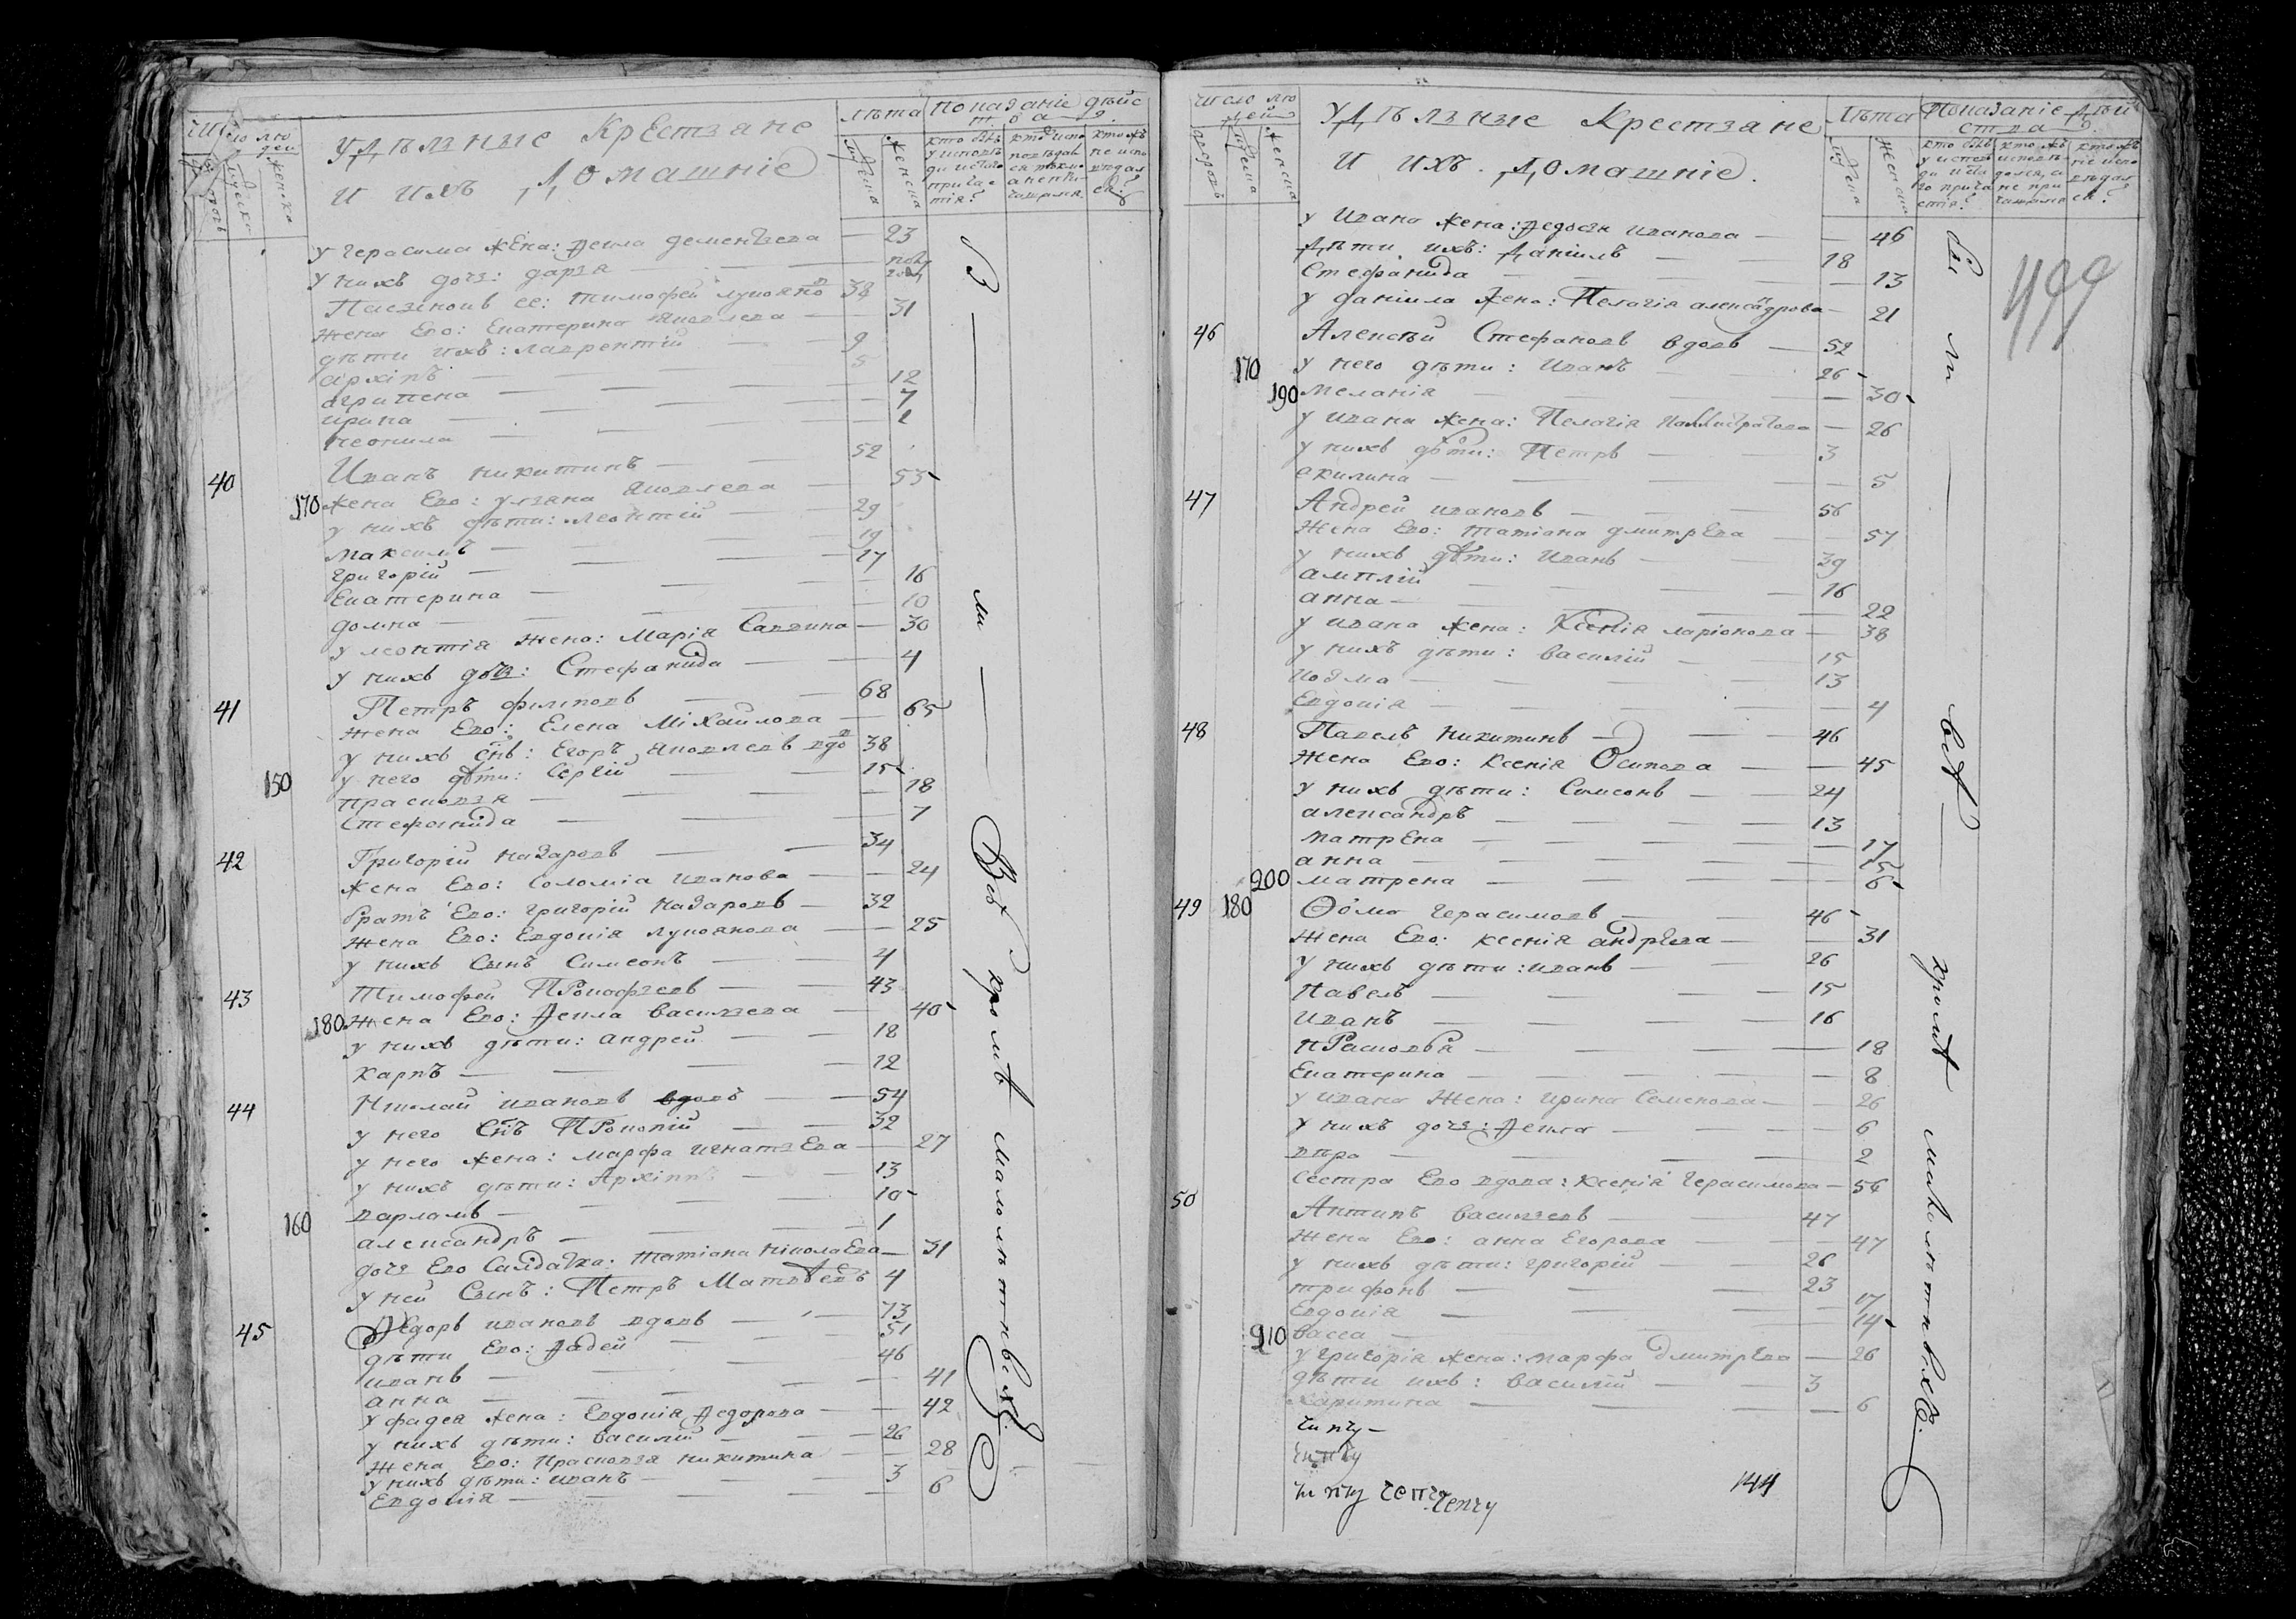 Число людей
дворовъ
мужеска
женска
Удѣлзные Крестзане
и ихъ Домашніе
лѣта
мужеска
женска
Показаніе дѣйства
у Герасима жена: Ѳекла дементзева — 23
у нихъ дочз: дарзя — полугода
Пасынокъ ее: тимофей лукояно 38
жена Его: Екатерина яковлева — 31
дѣти ихъ: лаврентій — 9
архіпъ — 5
агрипена — 12
ирина — 7
неонила — 2
40 Иванъ никитинъ — 52
170 жена Его: улзяна яковлева — 55
у нихъ дѣти: леонтій — 29
максимъ — 19
григорій — 17
Екатерина — 16
домна — 10
у леонтія жена: Марія Саввина — 30
у нихъ дочз: Стефанида — 4
41 Петръ филиповъ — 68
жена Его: Елена Міхайлова — 65
у нихъ снъ: Егоръ яковлевъ вдо 38
150 у него дѣти: Сергій — 15
прасковзя — 18
Стефанида — 7
42 Григорій назаровъ — 34
жена Его: Соломіа иванова — 24
братъ Его: григорій назаровъ — 32
жена Его: Евдокія лукоянова — 25
у нихъ Сынъ Симеонъ — 4
43 Тимофей Прокофзевъ — 43
180 жена Его: Ѳекла василзева — 40
у нихъ дѣти: андрей — 18
карпъ — 12
44 Николай ивановъ вдовъ — 54
у него Снъ Прокопій — 32
у него жена: марфа игнатзева — 27
у нихъ дѣти: Архіппъ — 13
варламъ — 10
160 александръ — 1
дочз Его Салдатка: татіана ніколаева — 31
у ней Сынъ: Петръ Матвѣевъ 4
45 Ѳедоръ ивановъ вдовъ — 73
дѣти Его: Ѳадей — 51
иванъ — 46
анна — 41
у фадея жена: Евдокія Ѳедорова — 42
у нихъ дѣти: василій — 26
жена Его: Прасковзя никитина — 28
у нихъ дѣти: иванъ — 3
Евдокія — 6
Всѣ кромѣ малолѣтныхъ
Число людей
дворовъ
мужеска
женска
Удѣлзные Крестзане
и ихъ Домашніе.
Лѣта
мужеска
женска
Показаніе дѣйства
499
у Ивана жена: Ѳедосзя иванова — 46
Дѣти ихъ: Даніилъ — 18
Стефанида — 13
у даніила жена: Пелагія александрова — 21
46 Алексѣй Стефановъ вдовъ — 52
170 у него дѣти: Иванъ — 26
190 меланія — 30
у ивана жена: Пелагія Каллистратова — 26
у нихъ дѣти: Петръ — 3
акилина — 5
47 Андрей ивановъ — 56
жена Его: татіана дмитрева — 57
у нихъ дѣти: Иванъ — 39
амплій — 16
анна — 22
у ивана жена: Ксенія ларіонова — 38
у нихъ дѣти: василій — 15
козма — 13
Евдокія — 4
48 Павелъ Никитинъ — 46
жена Его: Ксенія Осипова — 45
у нихъ дѣти: Симеонъ — 24
александръ — 13
матрена — 17
анна — 15
200 матрена — 6
49 180 Ѳома Герасимовъ — 46
жена Его: ксенія андрѣева — 31
у нихъ дѣти: иванъ — 26
Павелъ — 15
Иванъ — 16
Прасковзя — 18
Екатерина — 8
у ивана жена: ирина Семенова — 26
у нихъ дочз: Ѳекла — 6
вѣра — 2
сестра Его вдова: ксенія Герасимова — 56
50 Антипъ василзевъ — 47
жена Его: анна Егорова — 47
у нихъ дѣти: григорій — 26
трифонъ — 23
Евдокія — 17
210 васса — 14
у григорія жена: марфа дмитрева — 26
дѣти ихъ: василій — 3
харитина — 6
144
всѣ кромѣ малолѣтныхъ